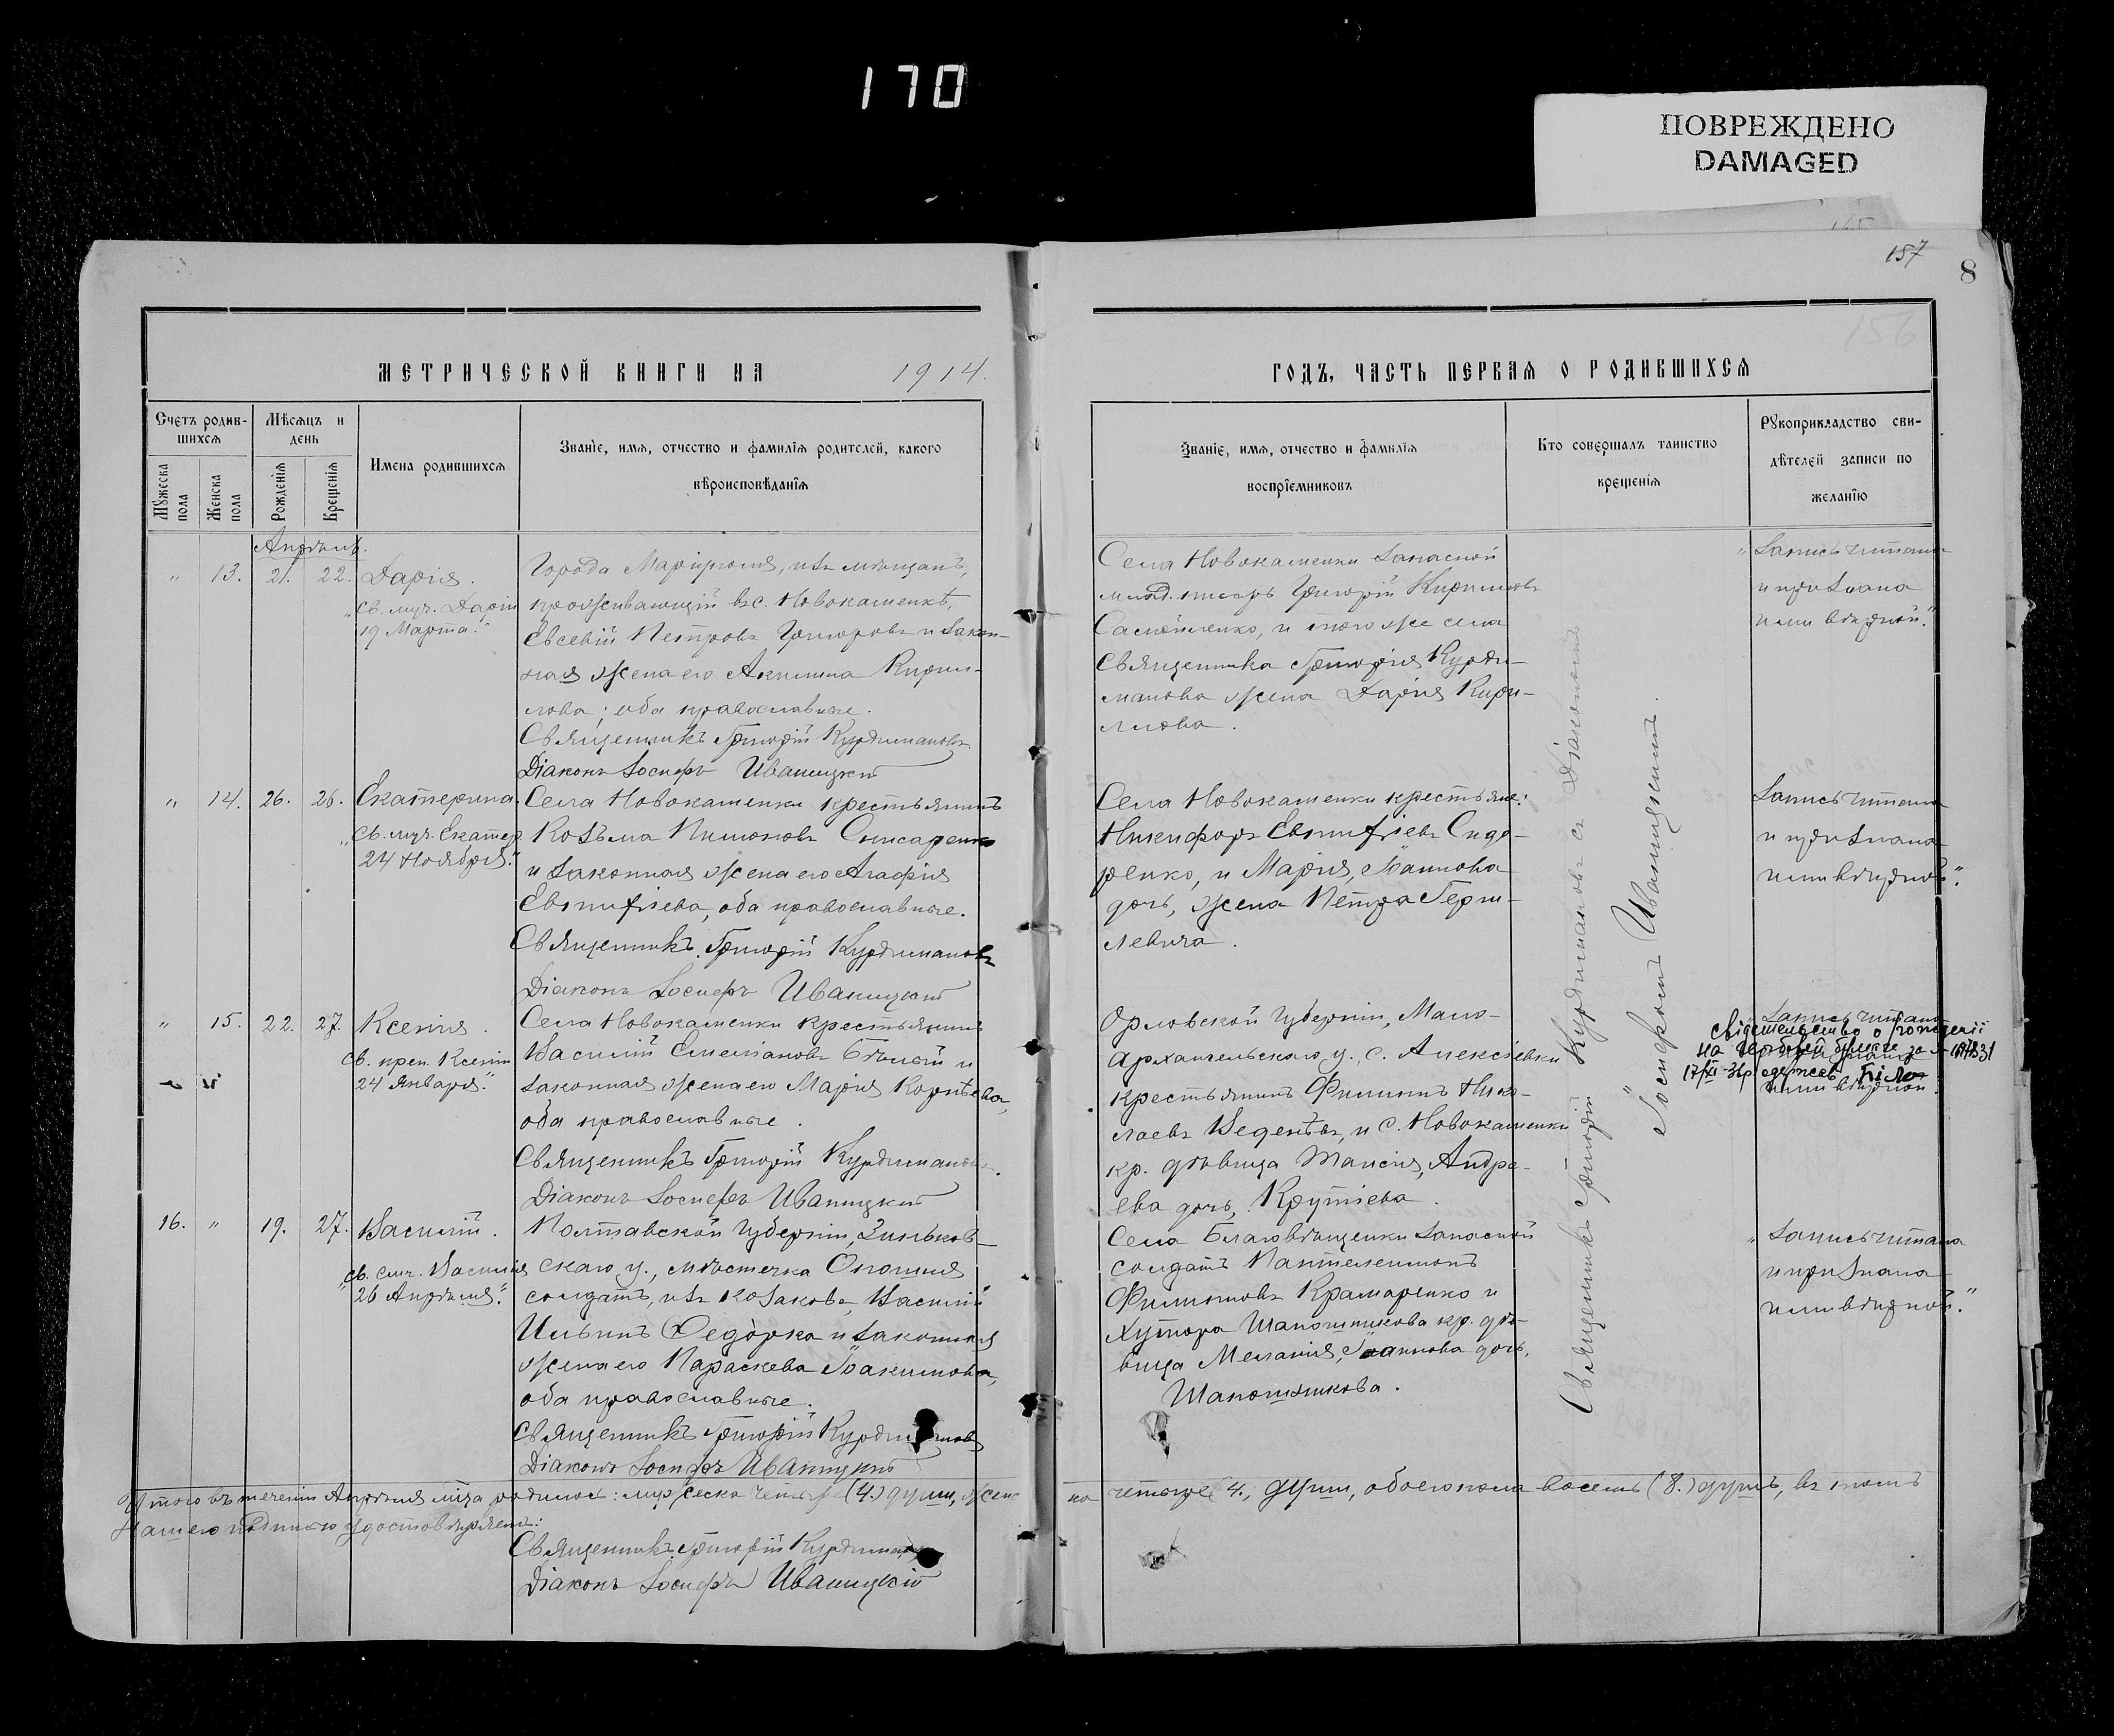 170
ПОВРЕЖДЕНО
DAMAGED
157
8
156
МЕТРИЧЕСКОЙ КНИГИ НА 1914.
ГОДЪ, ЧАСТЬ ПЕРВАЯ О РОДИВШИХСЯ
Счетъ родив-
шихся
Мужеска пола
Женска пола
Мѣсяцъ и
день
Рожденія
Крещенія
Имена родившихся
Званіе, имя, отчество и фамилія родителей, какого
вѣроисповѣданія
Званіе, имя, отчество и фамилія
воспріемниковъ
Кто совершалъ таинство
крещенія
Рукоприкладство сви-
дѣтелей записи по
желанію
Апрѣль.
" 13. 21. 22. Дарія.
св. муч. Даріи
19 Марта."
Города Маріуполя, изъ мѣщанъ,
проживающій въ с. Новокаменкѣ,
Евсевій Петровъ Григоровъ и закон-
ная жена его Акилина Кирил-
лова; оба православные.
Священникъ Григорій Курдимановъ
Діаконъ Іосифъ Иваницкій
Села Новокаменки запасной
писарь Григорій Кирилловъ
и того же села
Священника Григорія Курди-
манова жена Дарія Кири-
ллова.
"Запись читана
и признана
ими вѣрной."
" 14. 26. 26. Екатерина.
"св. муч. Екатер.
24 Ноября."
Села Новокаменки крестьянинъ
Козьма Пимоновъ Слисаренко
и законная жена его Агафія
Евтихіева, оба православные.
Священникъ Григорій Курдимановъ
Діаконъ Іосифъ Иваницкій
Села Новокаменки крестьяне:
Никифоръ Евтихіевъ Сидо-
ренко, и Марія, Іоаннова
дочь, жена Петра Герги-
левича.
Запись читана
и признана
ими вѣрной."
" 15. 22. 27. Ксенія.
св. преп. Ксеніи
24 Января."
Села Новокаменки крестьянинъ
Василій Емеліановъ Бѣлый и
законная жена его Марія Корнѣева,
оба православные.
Священникъ Григорій Курдимановъ.
Діаконъ Іосифъ Иваницкій
Орловской губерніи, Мало-
архангельскаго у., с. Алексѣевки
крестьянинъ Филиппъ Нико-
лаевъ Веденѣевъ, и с. Новокаменки
кр. дѣвица Таисія, Андре-
ева дочь, Крутіева.
"Запись читана
ими вѣрной
16. " 19. 27. Василій.
"св. смч. Василія
26 Апрѣля."
Полтавской губерніи, Зиньков-
скаго у., мѣстечка Опошня
солдатъ, изъ козаковъ, Василій
Ильинъ Федорка и законная
жена его Параскева Іоакимова,
оба православные.
Священникъ Григорій Курдимановъ
Діаконъ Іосифъ Иваницкій
Села Благовѣщенки запасной
солдатъ Пантелеимонъ
Филипповъ Крамаренко и
хутора Шапошникова кр. дѣ-
вица Меланія, Іоаннова дочь,
Шапошникова.
"Запись читана
и признана
ими вѣрной."
Священникъ Григорій Курдимановъ съ Діакономъ
Іосифомъ Иваницкимъ.
Итого въ теченіи Апрѣля мѣца родилось: мужеска четыре (4.) души, женс
ка четыре (4.) души, обоего пола восемь (8.) душъ, въ томъ
Нашею подписью удостовѣряемъ:
Священникъ Григорій Курдимановъ
Діаконъ Іосифъ Иваницкій